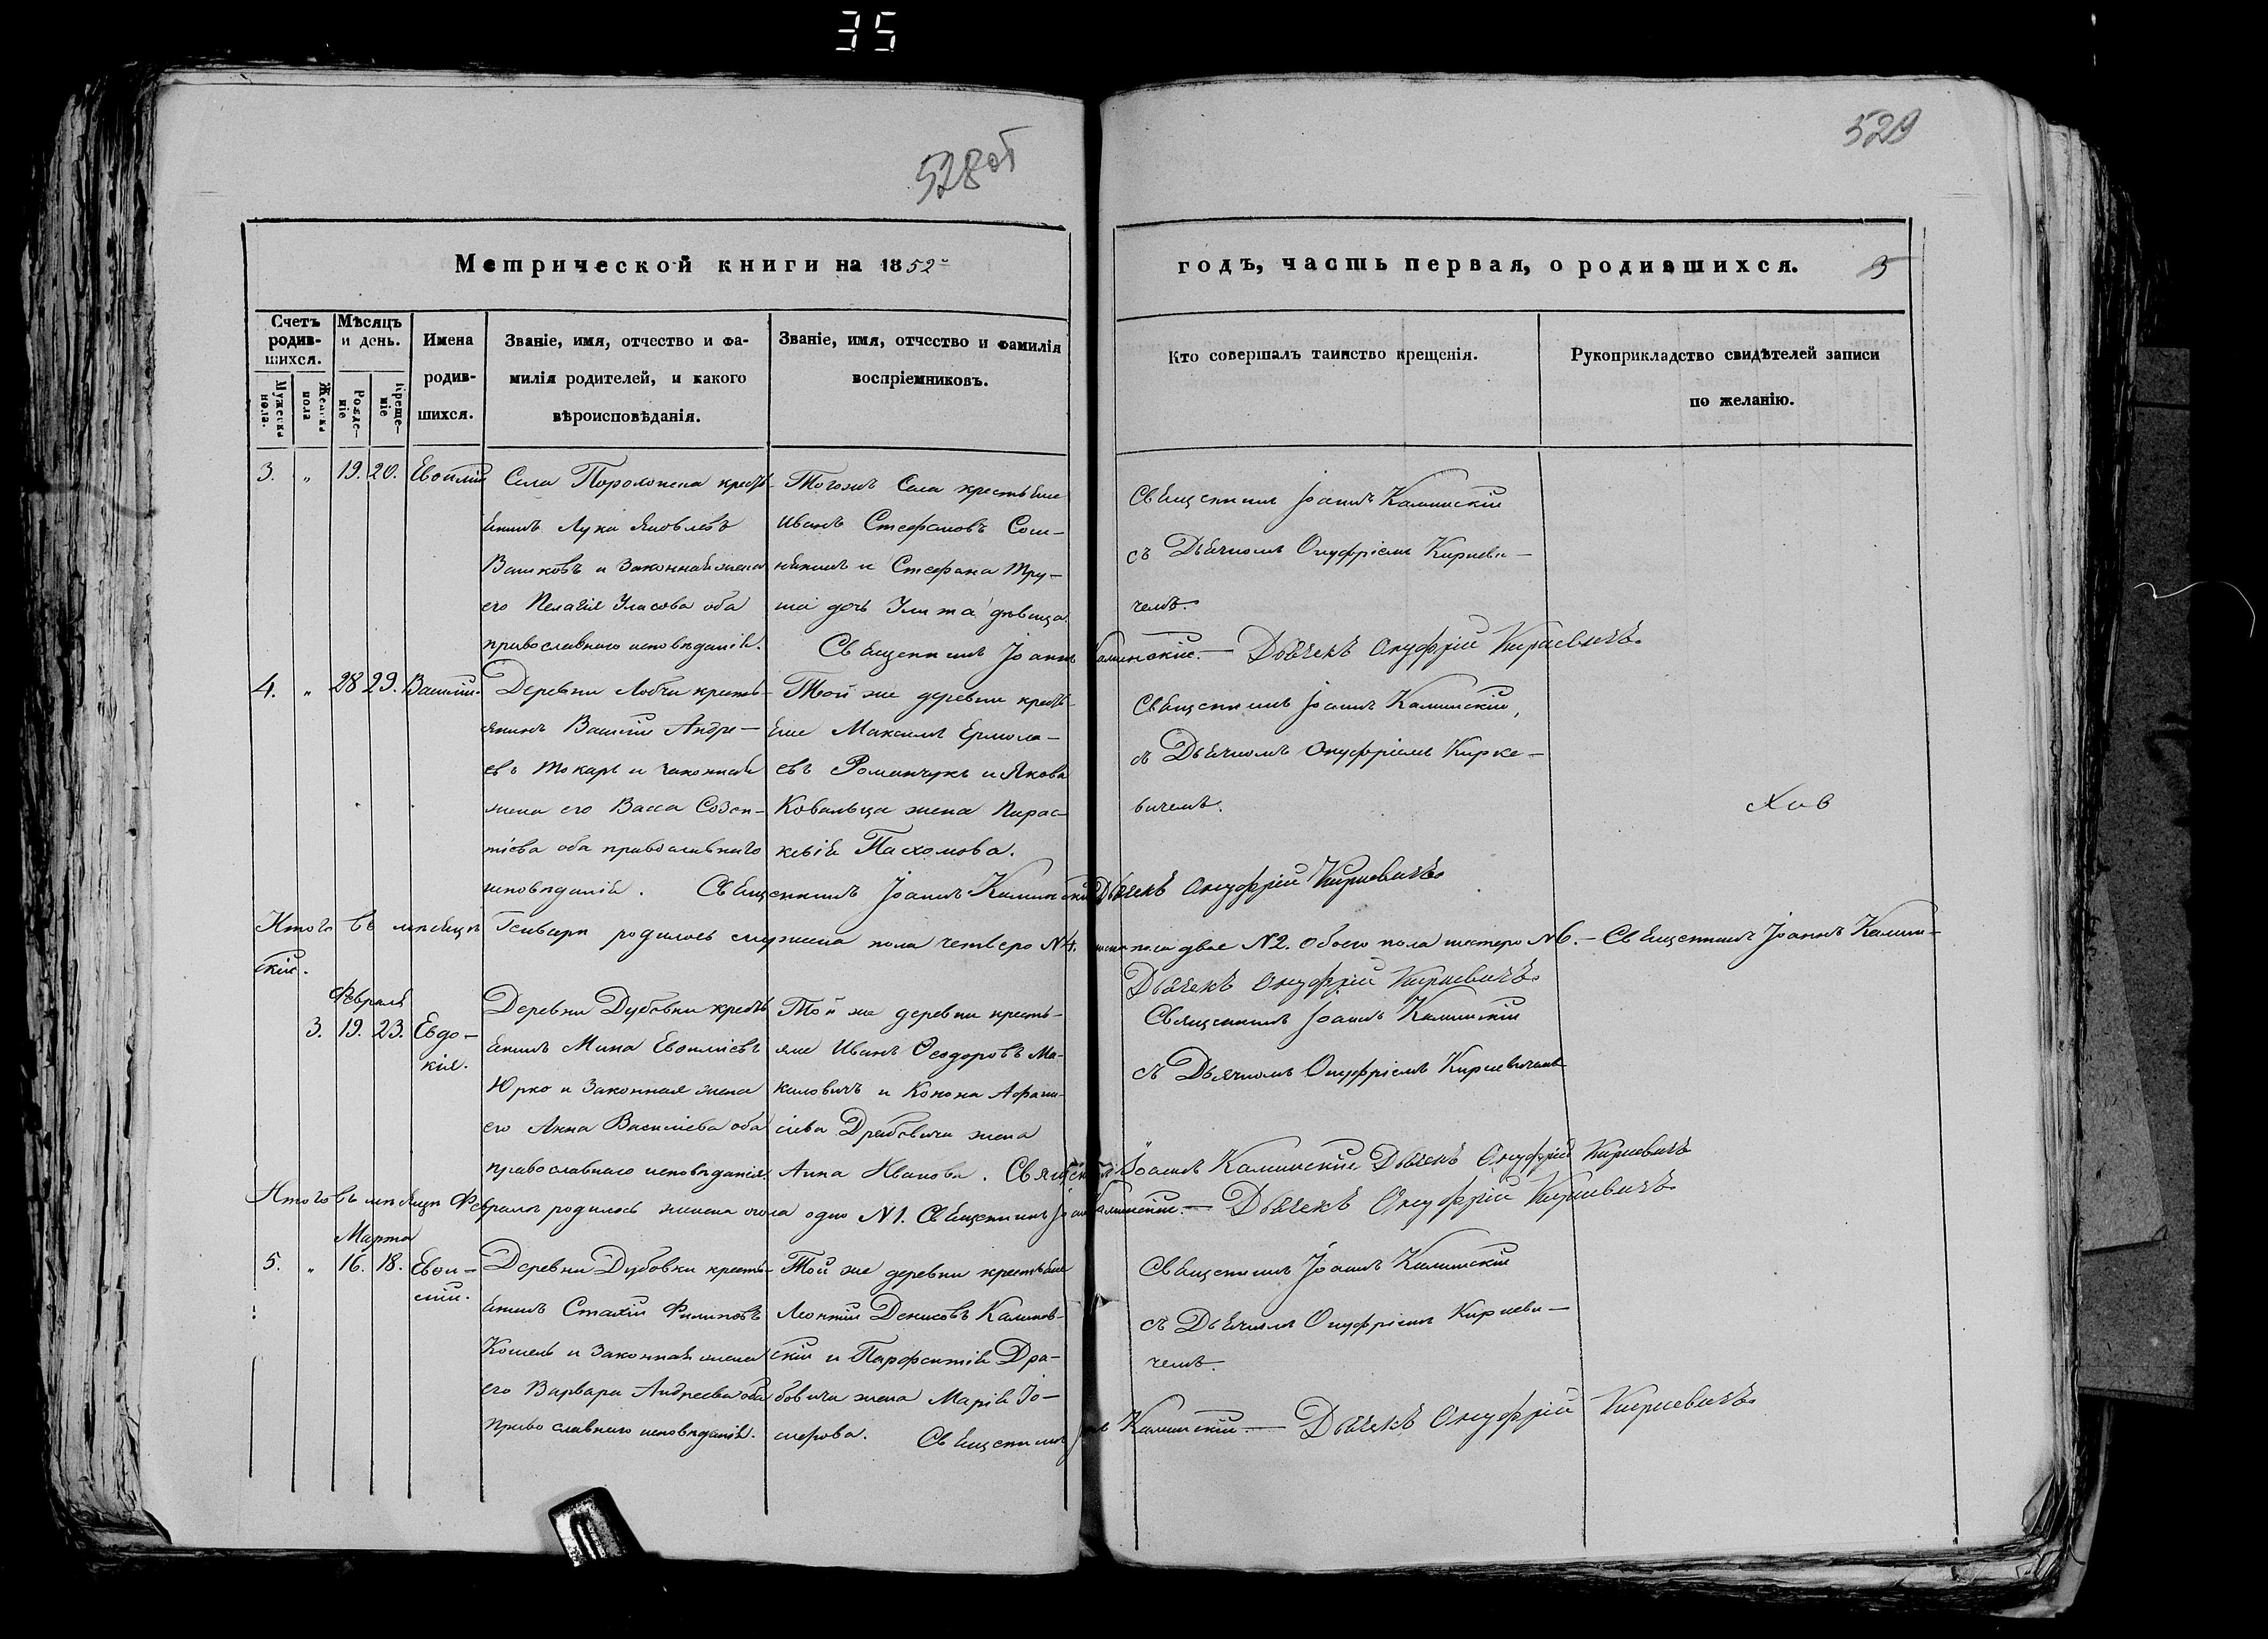 35
528об
529
Метрической книги на 1852й
годъ, часть первая, о родившихся.
3
Счетъ родив-шихся.
Мѣсяцъ и день.
Имена родив-шихся.
Званіе, имя, отчество и фа-милія родителей, и какого вѣроисповѣданія.
Званіе, имя, отчество и фамилія воспріемниковъ.
Кто совершалъ таинство крещенія.
Рукоприкладство свидѣтелей записи по желанію.
Мужеска пола.
Женска пола
Рожде-ніе
Креще-ніе
3. „ 19. 20. Евѳимій
Села Поролонена кресть-
янинъ Лука Яковлевъ
Вашковъ и законная жена
его Пелагія Уласова оба
православнаго исповѣданія.
Тогожъ Села крестьяне
Иванъ Стефановъ Сош-
някинъ и Стефана Тру-
ша дочь Улита дѣвица.
Священникъ Іоаннъ Калинскій
съ Дьячкомъ Онуфріемъ Киркеви-
чемъ.
Священникъ Іоаннъ Калинскій. — Дьячекъ Онуфрій Киркевичъ.
4. „ 28 29. Василій.
Деревни Лобчи кресть-
янинъ Василій Андре-
евъ Токарь и законная
жена его Васса Созон-
тіева оба православнаго
исповѣданія.
Той же деревни кресть-
яне Максимъ Ермола-
евъ Романчукъ и Якова
Ковальца жена Парас-
кевія Пахомова.
Священникъ Іоаннъ Калинскій,
съ Дьячкомъ Онуфріемъ Кирке-
вичемъ.
Священникъ Іоаннъ Калинскій Дьячекъ Онуфрій Киркевичъ.
Итого въ мѣсяцѣ Генварѣ родилось мужеска пола четверо №4. женска пола двое №2. Обоего пола шестеро №6. — Священникъ Іоаннъ Калин-
скій.
Дьячекъ Онуфрій Киркевичъ.
Февраля
3. 19. 23. Евдо-
кія.
Деревни Дубовки кресть-
янинъ Мина Евѳиміевъ
Юрко и законная жена
его Анна Василіева оба
православнаго исповѣданія.
Той же деревни кресть-
яне Иванъ Ѳеодоровъ Ма-
каловичъ и Конона Афана-
сіева Драбовича жена
Анна Иванова.
Священникъ Іоаннъ Калинскій
съ Дьячкомъ Онуфріемъ Киркевичемъ
Священникъ Іоаннъ Калинскій Дьячекъ Онуфрій Киркевичъ
Итого въ мѣсяцѣ Февралѣ родилось женска пола одно №1. Священникъ Іоаннъ Калинскій. — Дьячекъ Онуфрій Киркевичъ.
Марта
5. „ 16. 18. Евѳи-
мій.
Деревни Дубовки кресть-
янинъ Стахій Филиповъ
Кошель и законная жена
его Варвара Андреева оба
православнаго исповѣданія.
Той же деревни крестьяне
Леонтій Денисовъ Калинов-
скій и Парфентія Дра-
бовича жена Марія Іо-
сифова.
Священникъ Іоаннъ Калинскій
съ Дьячкомъ Онуфріемъ Киркеви-
чемъ.
Священникъ Іоаннъ Калинскій. — Дьячекъ Онуфрій Киркевичъ.